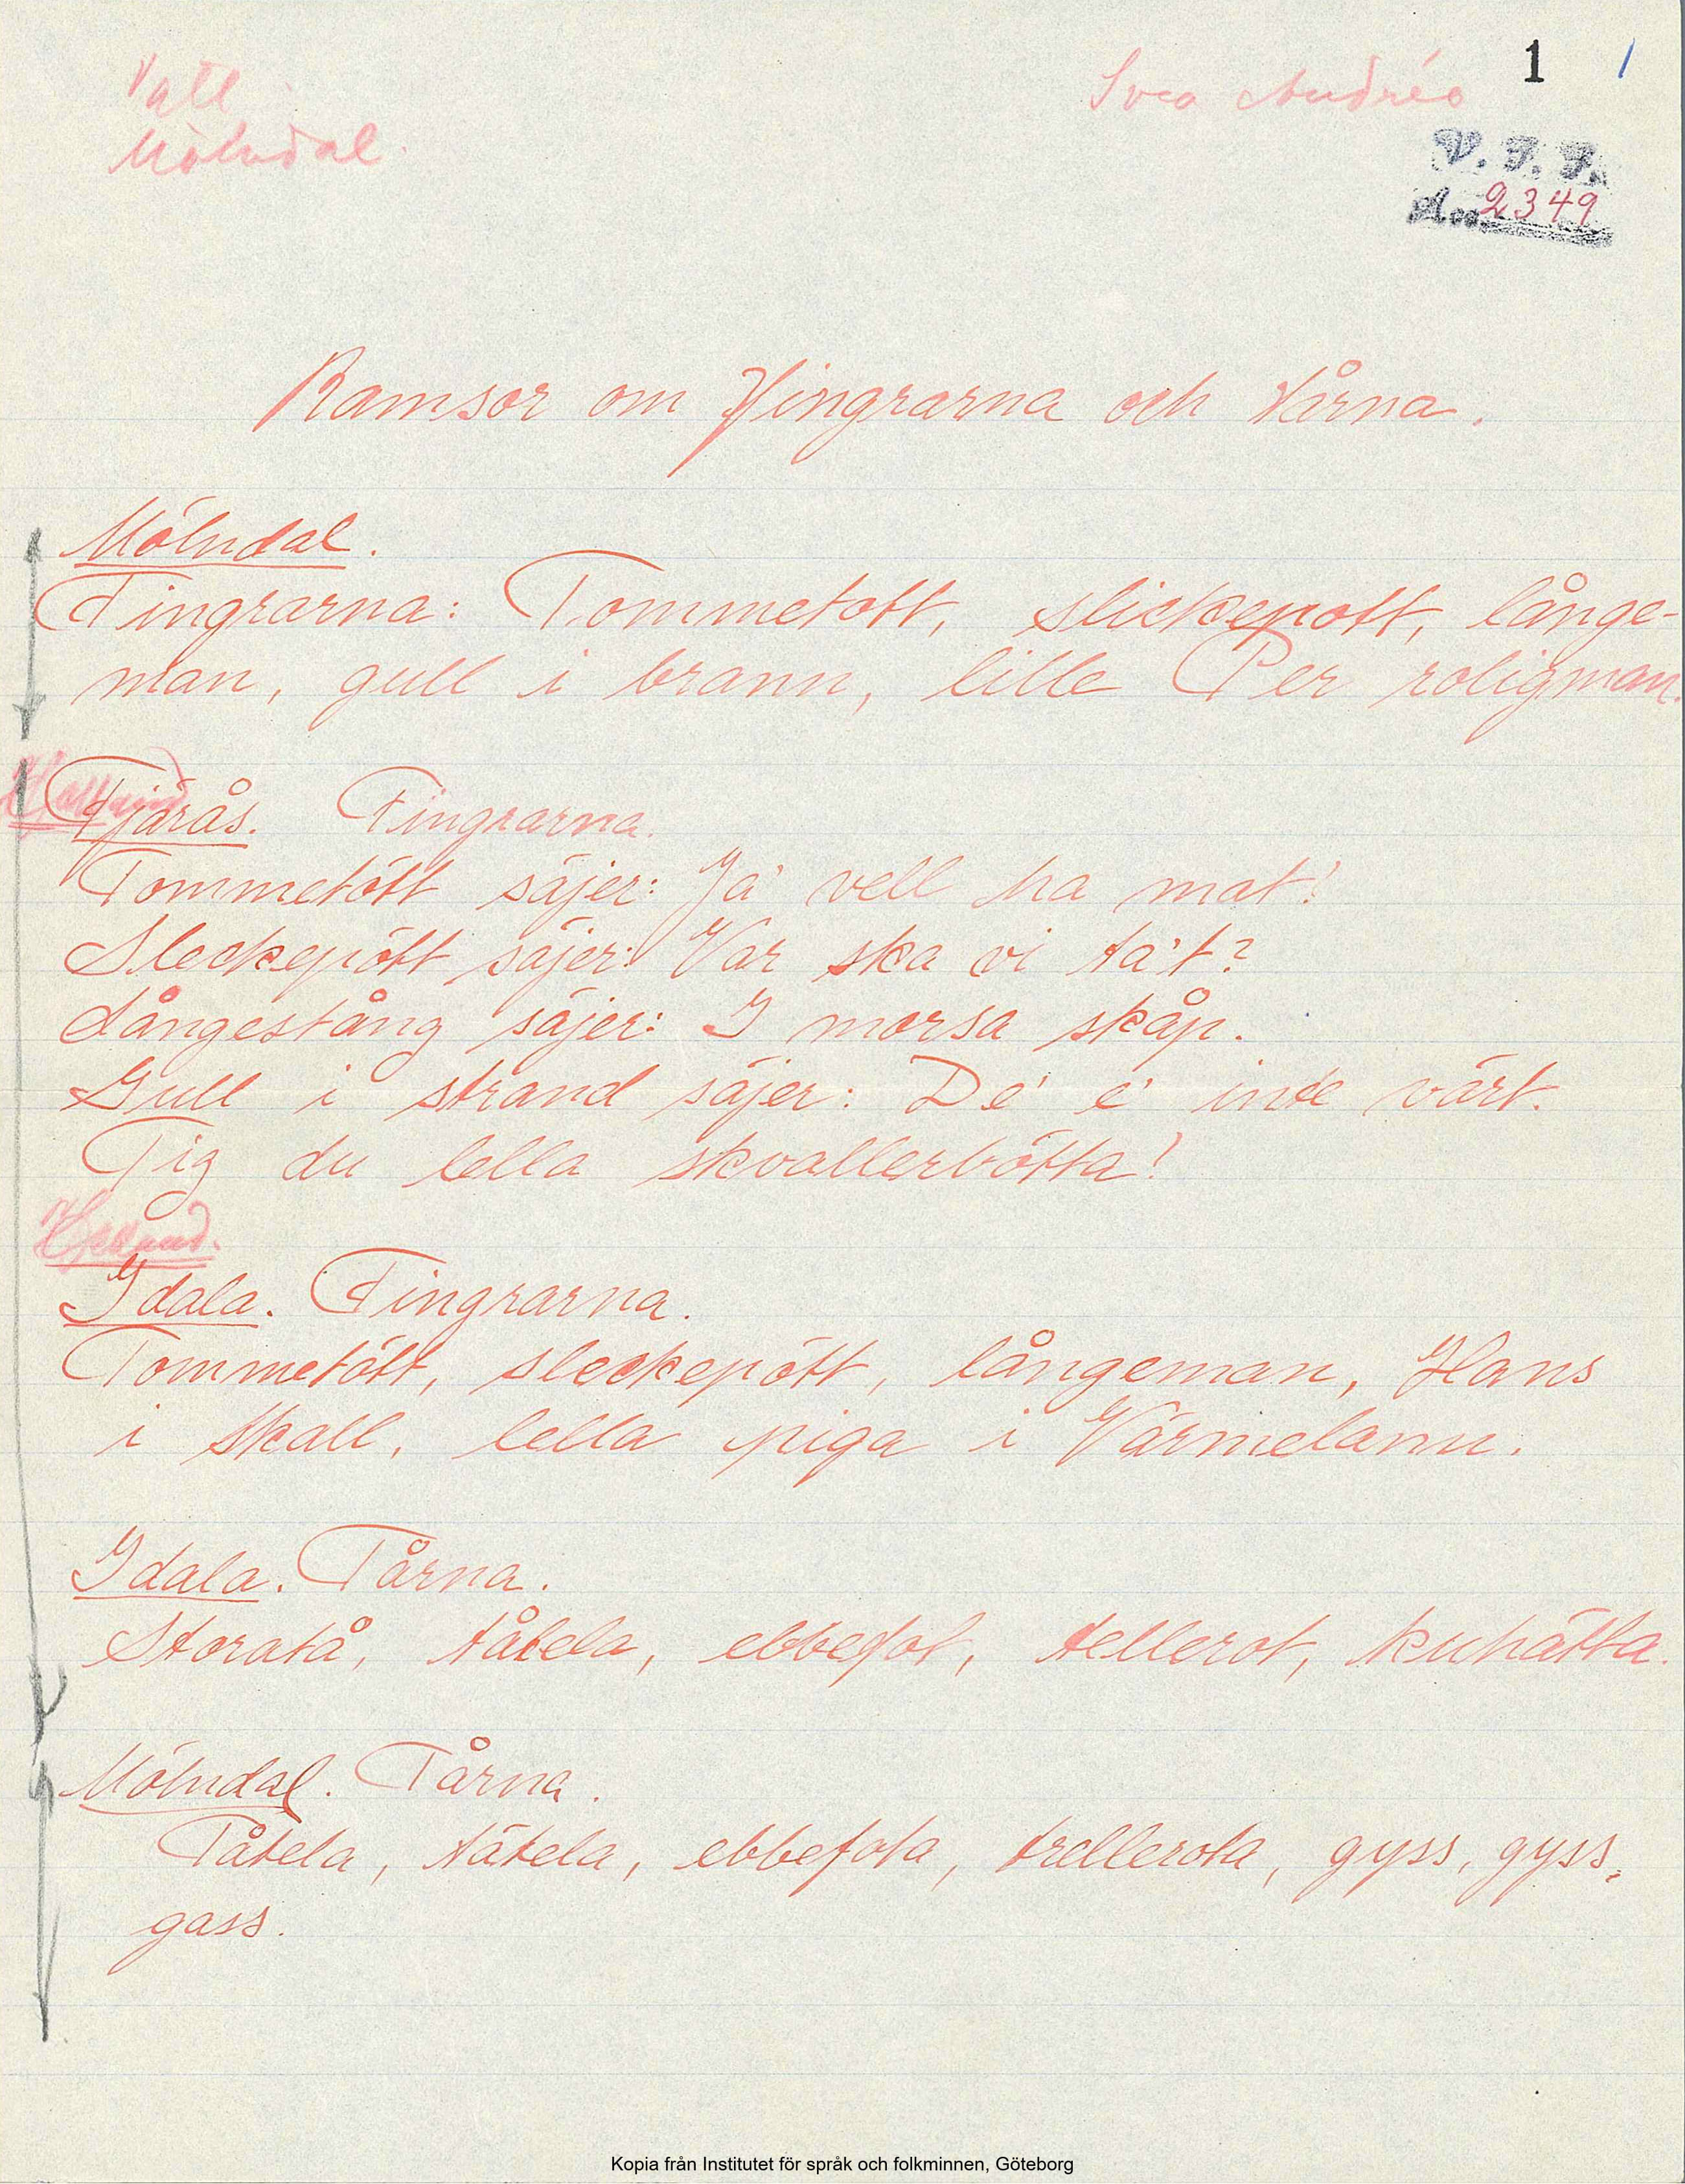 Vätl.
Mölndal.
Svea Andrés
1
1
V. F. F.
Acc. 2349
Ramsor om fingrarna och tårna.
Mölndal.
Fingrarna: Tommetott, slickepott, långe-
man, gull i brann, lille Per roligman.
Halland
Fjärås. Fingrarna.
Tommetött säjer: Ja' vell ha mat!
Sleckepött säjer: Var ska vi ta't?
Långestång säjer: I morsa skåp.
Gull i strand säjer: De' e' inte vårt.
Tig du lella skvallerbötta!
Halland.
Idala. Fingrarna.
Tommetött, sleckepött, långeman, Hans
i skall, lella piga i Värmelann.
Idala. Tårna.
Storatå, tåtela, ebbefot, tellerot, kuhätta.
Mölndal. Tårna.
Tåtela, tätela, ebbefota, trellerota, gyss, gyss,
gass.
Kopia från Institutet för språk och folkminnen, Göteborg